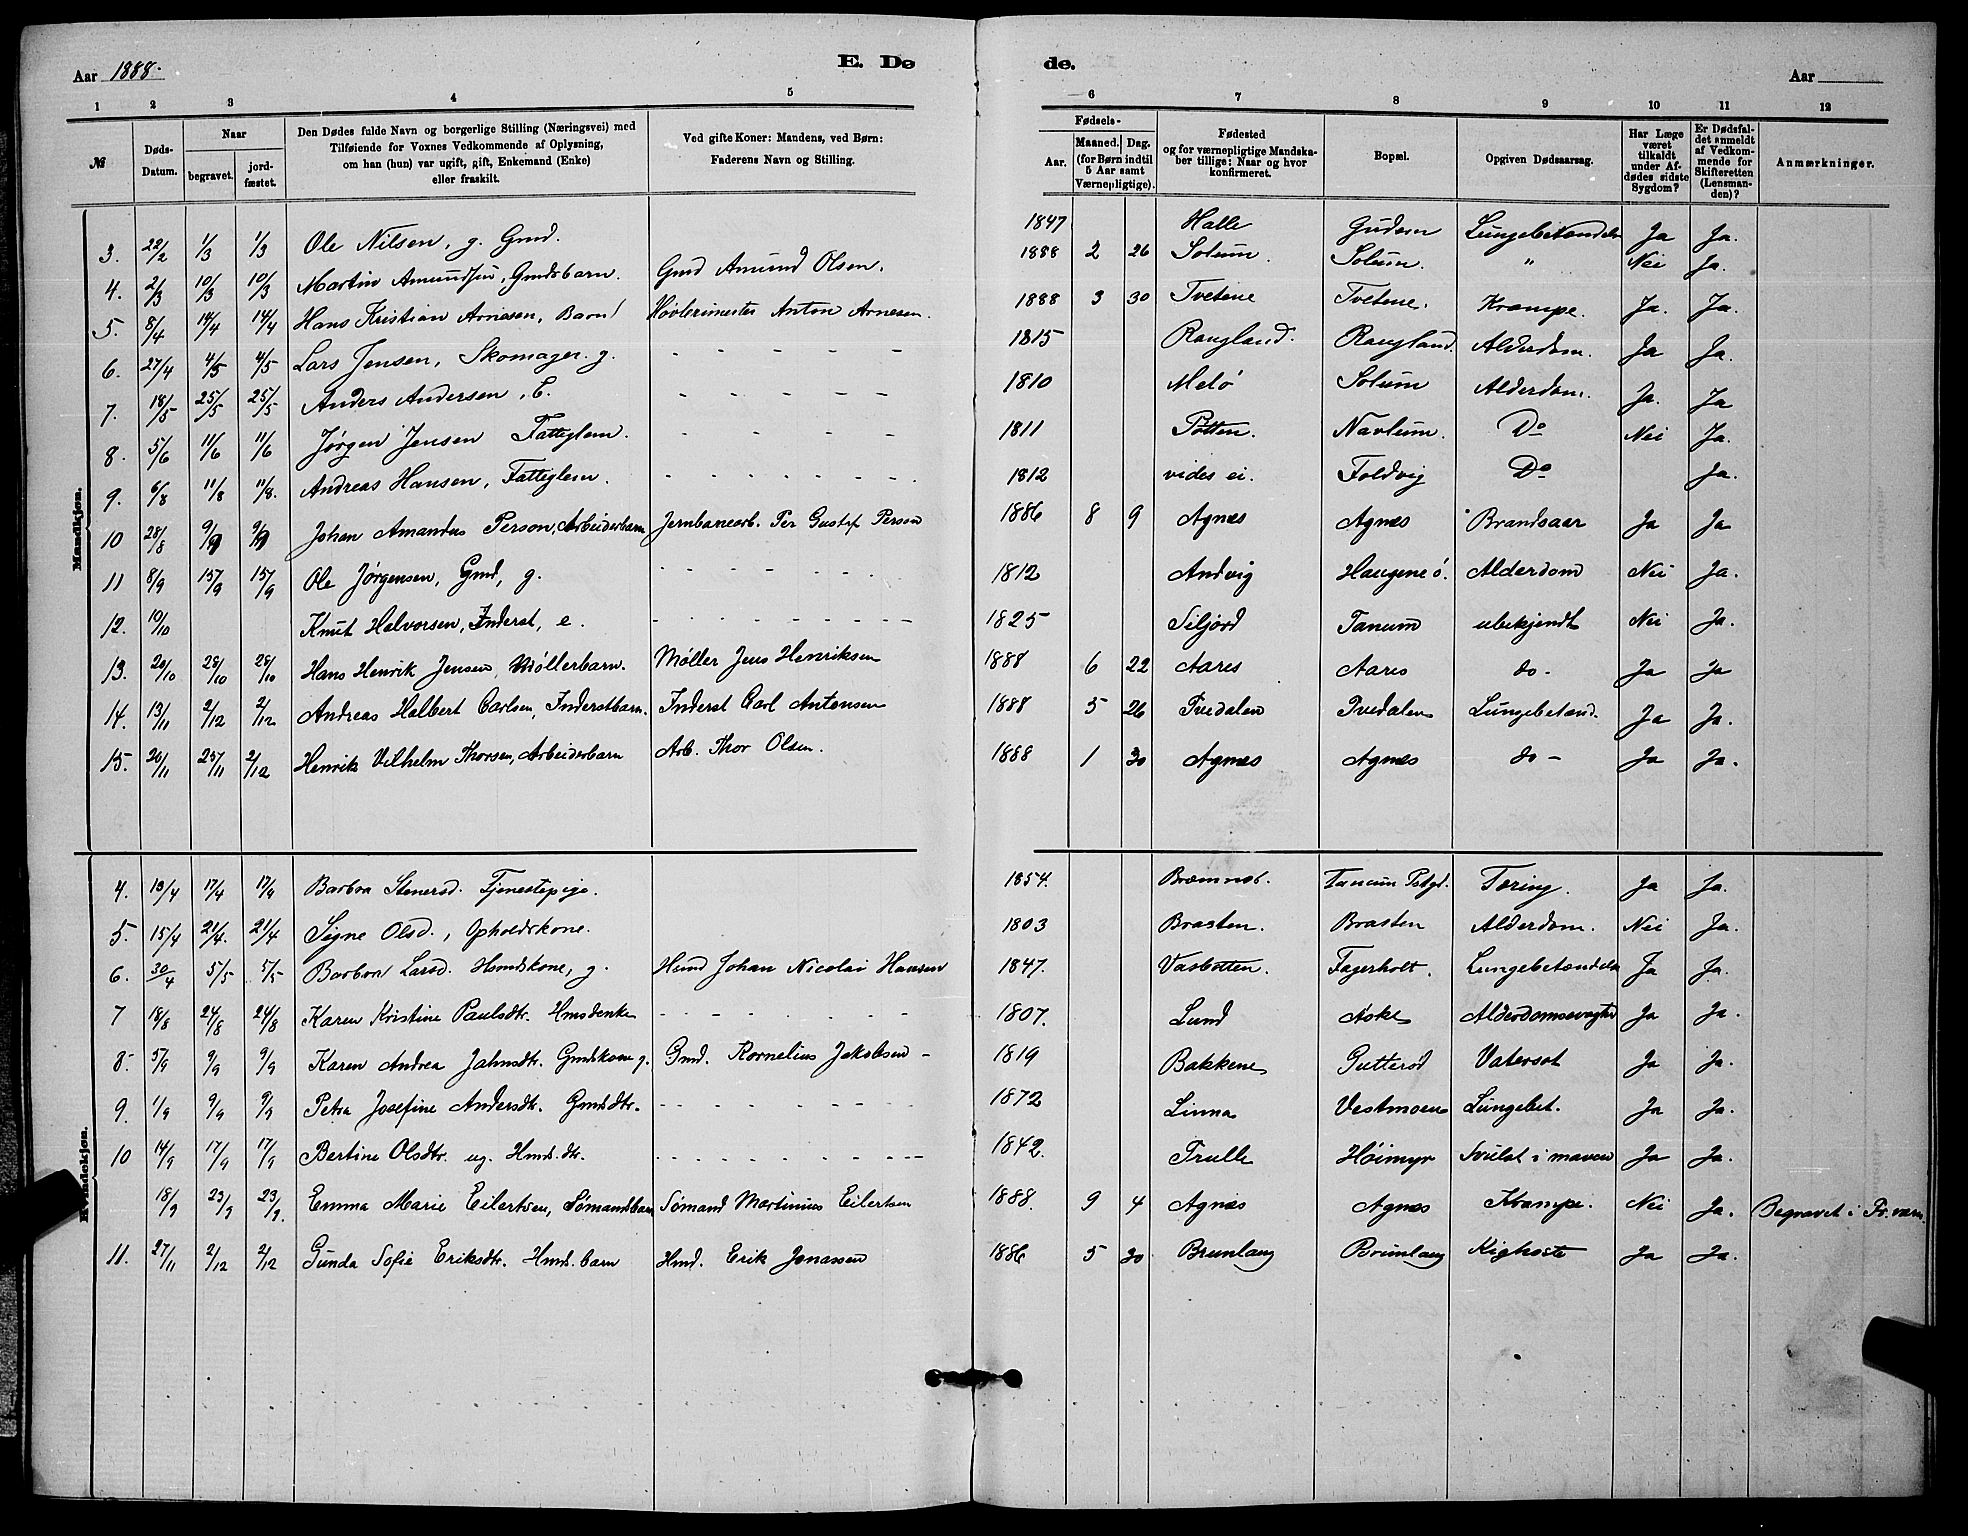 Aar 1888.
E. Dø
de.
Aar
1 2 3 4 5 6 7 8 9 10 11 12
№
Døds-Datum.
Naar
begravet.
jord-fæstet.
Den Dødes fulde Navn og borgerlige Stilling (Næringsvei) med
Tilføiende for Voxnes Vedkommende af Oplysning,
om han (hun) var ugift, gift, Enkemand (Enke)
eller fraskilt.
Ved gifte Koner: Mandens, ved Børn:
Faderens Navn og Stilling.
Fødsels-
Aar.
Maaned. Dag.
(for Børn indtil
5 Aar samt
Værnepligtige).
Fødested
og for værnepligtige Mandska-
ber tillige: Naar og hvor
konfirmeret.
Bopæl.
Opgiven Dødsaarsag.
Har Læge
været
tilkaldt
under Af-
dødes sidste
Sygdom?
Er Dødsfal-
det anmeldt
af Vedkom-
mende for
Skifteretten
(Lensman-
den)?
Anmærkninger.
Mandkjøn.
3. 22/2 1/3 1/3 Ole Nilsen, g. Gmd. 1847 Halle Gudem Lungebetændelse Ja Ja.
4. 2/3 10/3 10/3 Martin Amundsen, Gmdsbarn. Gmd Amund Olsen. 1888 2 26 Solum. Solum. " Nei Ja.
5. 8/4 14/4 14/4 Hans Kristian Arnesen, Barn Høvlerimester Anton Arnesen. 1888 3 30 Tvetene Tvetene. Krampe. Ja. Ja.
6. 27/4 4/5 4/5 Lars Jensen, Skomager. g. - - - - - 1815 Raugland. Raugland. Alderdom. Ja Ja.
7. 18/5 25/5 25/5 Anders Andersen, E. - - - - - 1810 Melø Solum Alderdom. Ja. Ja
8. 5/6 11/6 11/6 Jørgen Jensen Fatteglem. - - - - - 1811 Potten. Navlum. Do Nei Ja.
9. 6/8 11/8 11/8. Andreas Hansen, Fatteglem. - - - - - - 1812 vides ei. Foldvig Do Ja.
10 28/8 9/9 9/9 Johan Amandus Person, Arbeiderbarn Jernbanearb. Per Gustaf Person 1886 8 9 Agnes Agnes Brandsaar Ja Ja
11 8/9 15/9 15/9 Ole Jørgensen, Gmd, g. - - - - - - 1812 Andvig Haugene ø. Alderdom Nei Ja.
12. 10/10 Knut Halvorsen, Inderst, e. - - - - - - - - 1825 Siljord Tanum ubekjendt Nei Ja.
13. 20/10 28/10 28/10 Hans Henrik Jensen, Møllerbarn. Møller Jens Henriksen 1888 6 22 Aares Aares do - Ja Ja
14. 13/11 2/12 2/12 Andreas Halbert Carlsen, Inderstbarn. Inderst Carl Antonsen 1888 5 26 Tvedalen Tvedalen Lungebetænd. Ja Ja.
15. 20/11 25/11 2/12 Henrik Vilhelm Thorsen, Arbeiderbarn Arb. Thor Olsen. 1888 1 30 Agnes Agnes do - Ja Ja.
Kvindekjøn.
4. 13/4 17/4 17/4 Barbra Stenersd. Tjenestepige. 1854. Bræmnes. Tanum Pstgd. Tæring. Ja Ja.
5. 15/4 21/4. 21/4 Signe Olsd., Opholdskone. 1803 Brasten. Brasten Alderdom. Nei Ja.
6. 30/4 5/5 5/5 Barbra Larsd. Hmdskone, g. Hmd Johan Nicolai Hansen 1847. Vasbotten. Fagerholt. Lungebetændelse Ja Ja.
7 18/8 24/8 24/8 Karen Kristine Paulsdtr. Hmdsenke - - - - - - - 1807. Lund Aske Alderdomssvaghed Ja Ja.
8. 5/9 9/9 9/9 Karen Andrea Jahnsdtr. Gmdskone g. Gmd. Kornelius Jakobsen - 1819 Bakkene Gutterød Vatersot Ja Ja.
9. 1/9 9/9 9/9 Petra Josefine Andersdtr. Gmdsdtr. - - - - - - - 1872 Linna Vestmoen Lungebet. Ja Ja.
10 14/9 17/9 17/9 Bertine Olsdtr. ug. Hmds.dtr. - - - - - - - - - 1842. Trulle Høimyr Svulst i maven Ja Ja.
18/9 23/9 23/9. Emma Marie Eilertsen, Sømandsbarn Sømand Martinius Eilertsen 1888. 9 4 Agnes Agnes Krampe. Nei Ja. Begravet i Fr.værn.
11. 27/11 2/12 2/12 Gunda Sofie Eriksdtr. Hmds.barn Hmd. Erik Jonassen 1886 5 30 Brunlang Brunlang Kighoste Ja Ja.